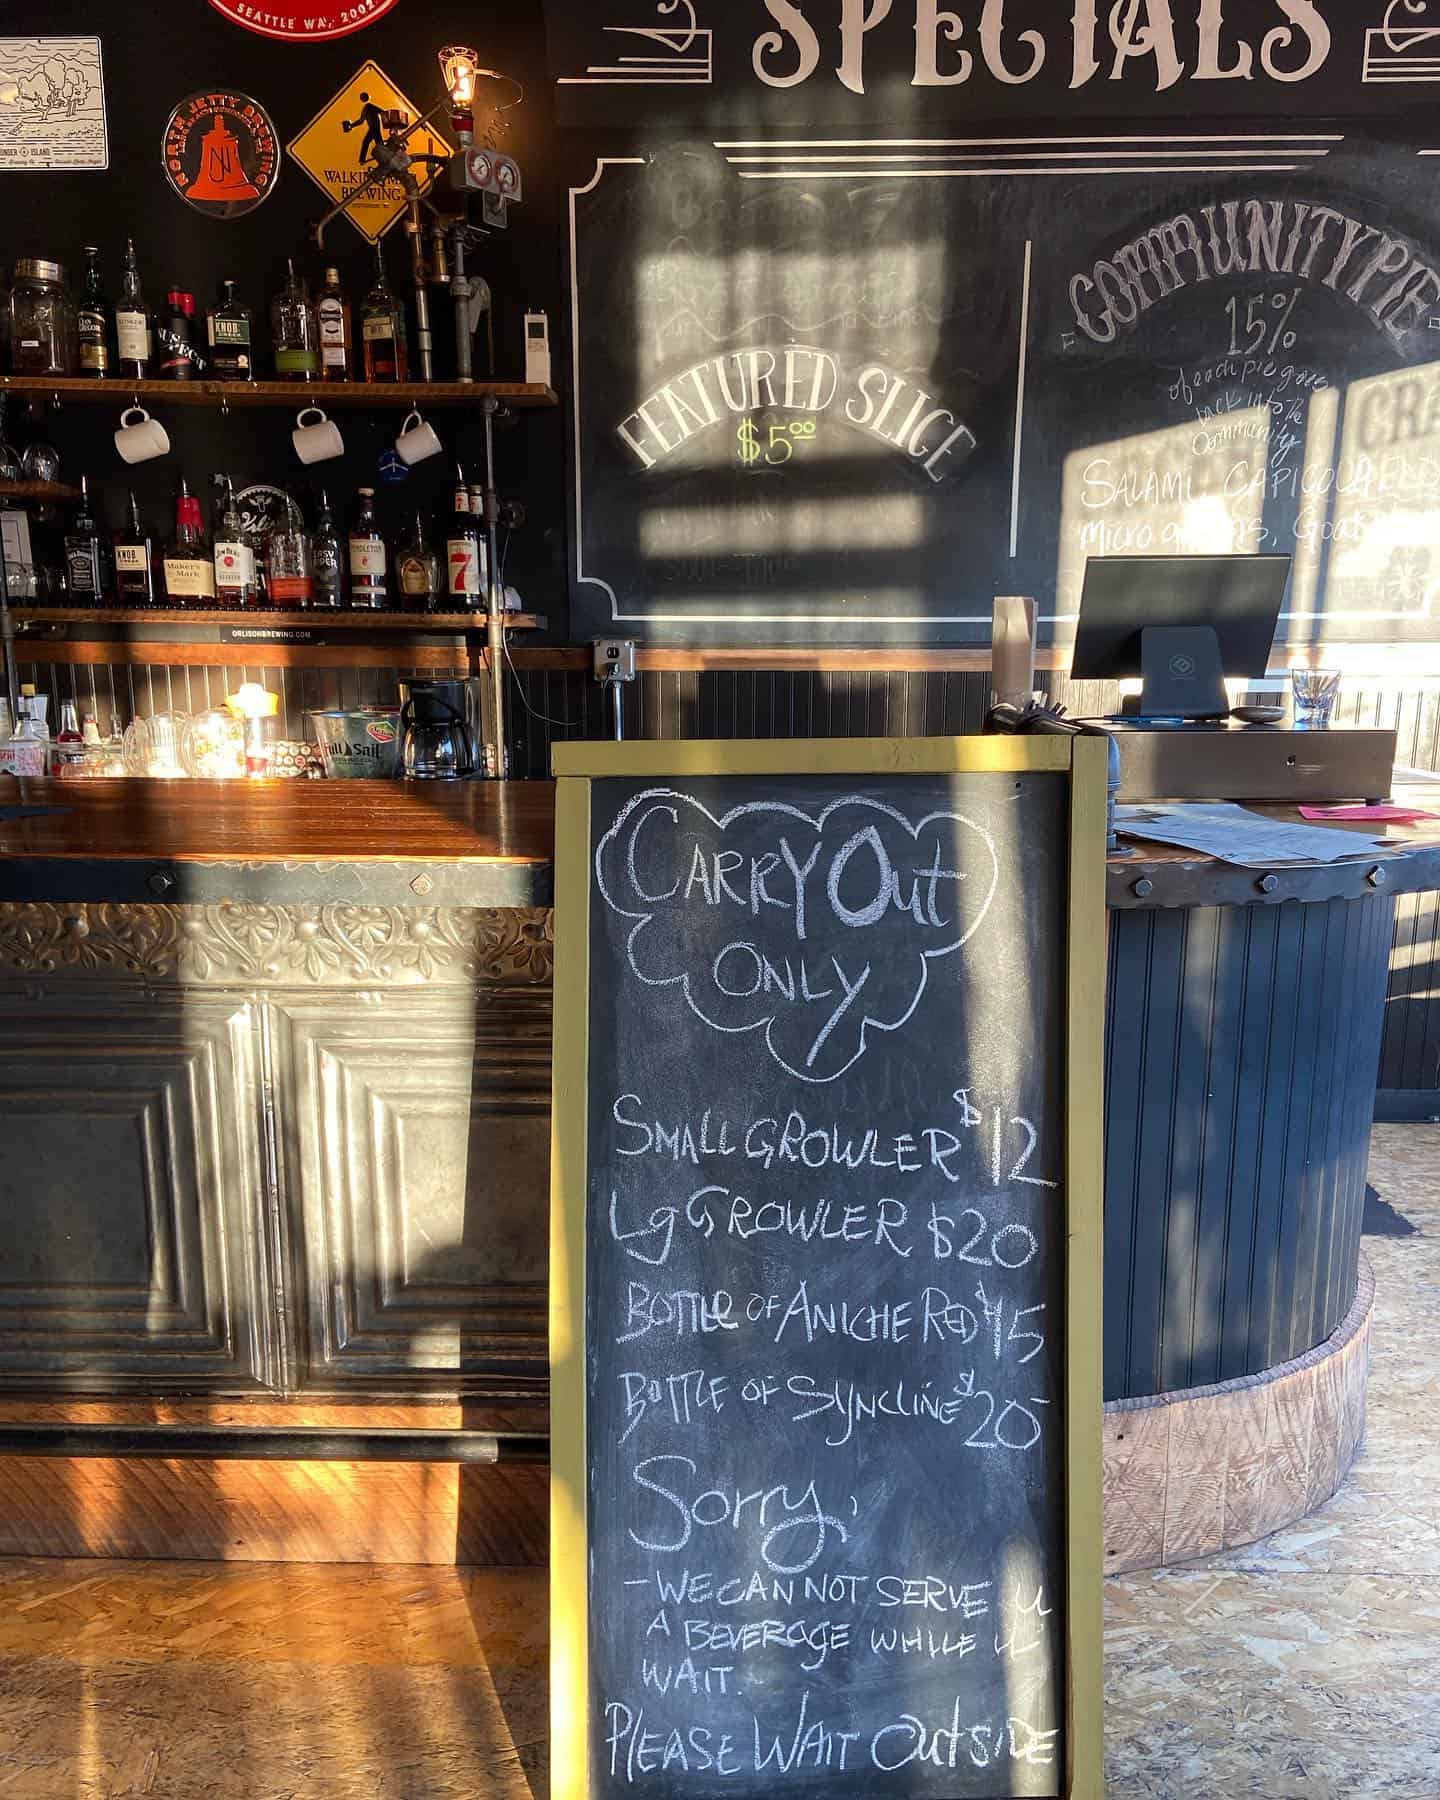 SEATTLE WA, 2002
SPECIALS
NORTH JETTY BREWING
BREWING
COMMUNITY PIE
15%
of each pie goes
back into the
Community
SALAMI, CAPICOLA
FEATURED SLICE
$5.00
KNOB
CREEK
KNOB
CREEK
Maker's
Mark
JIM BEAM
PENDLETON
7
ORLISONBREWING.COM
Full Sail
CARRY Out
ONLY
SMALL GROWLER $12
Lg GROWLER $20
BOTTLE OF ANICHE RED $15
BOTTLE OF SYNCLINE $20
Sorry,
- WE CAN NOT SERVE U
A BEVERAGE WHILE U
WAIT.
PLEASE WAIT OutSIDE